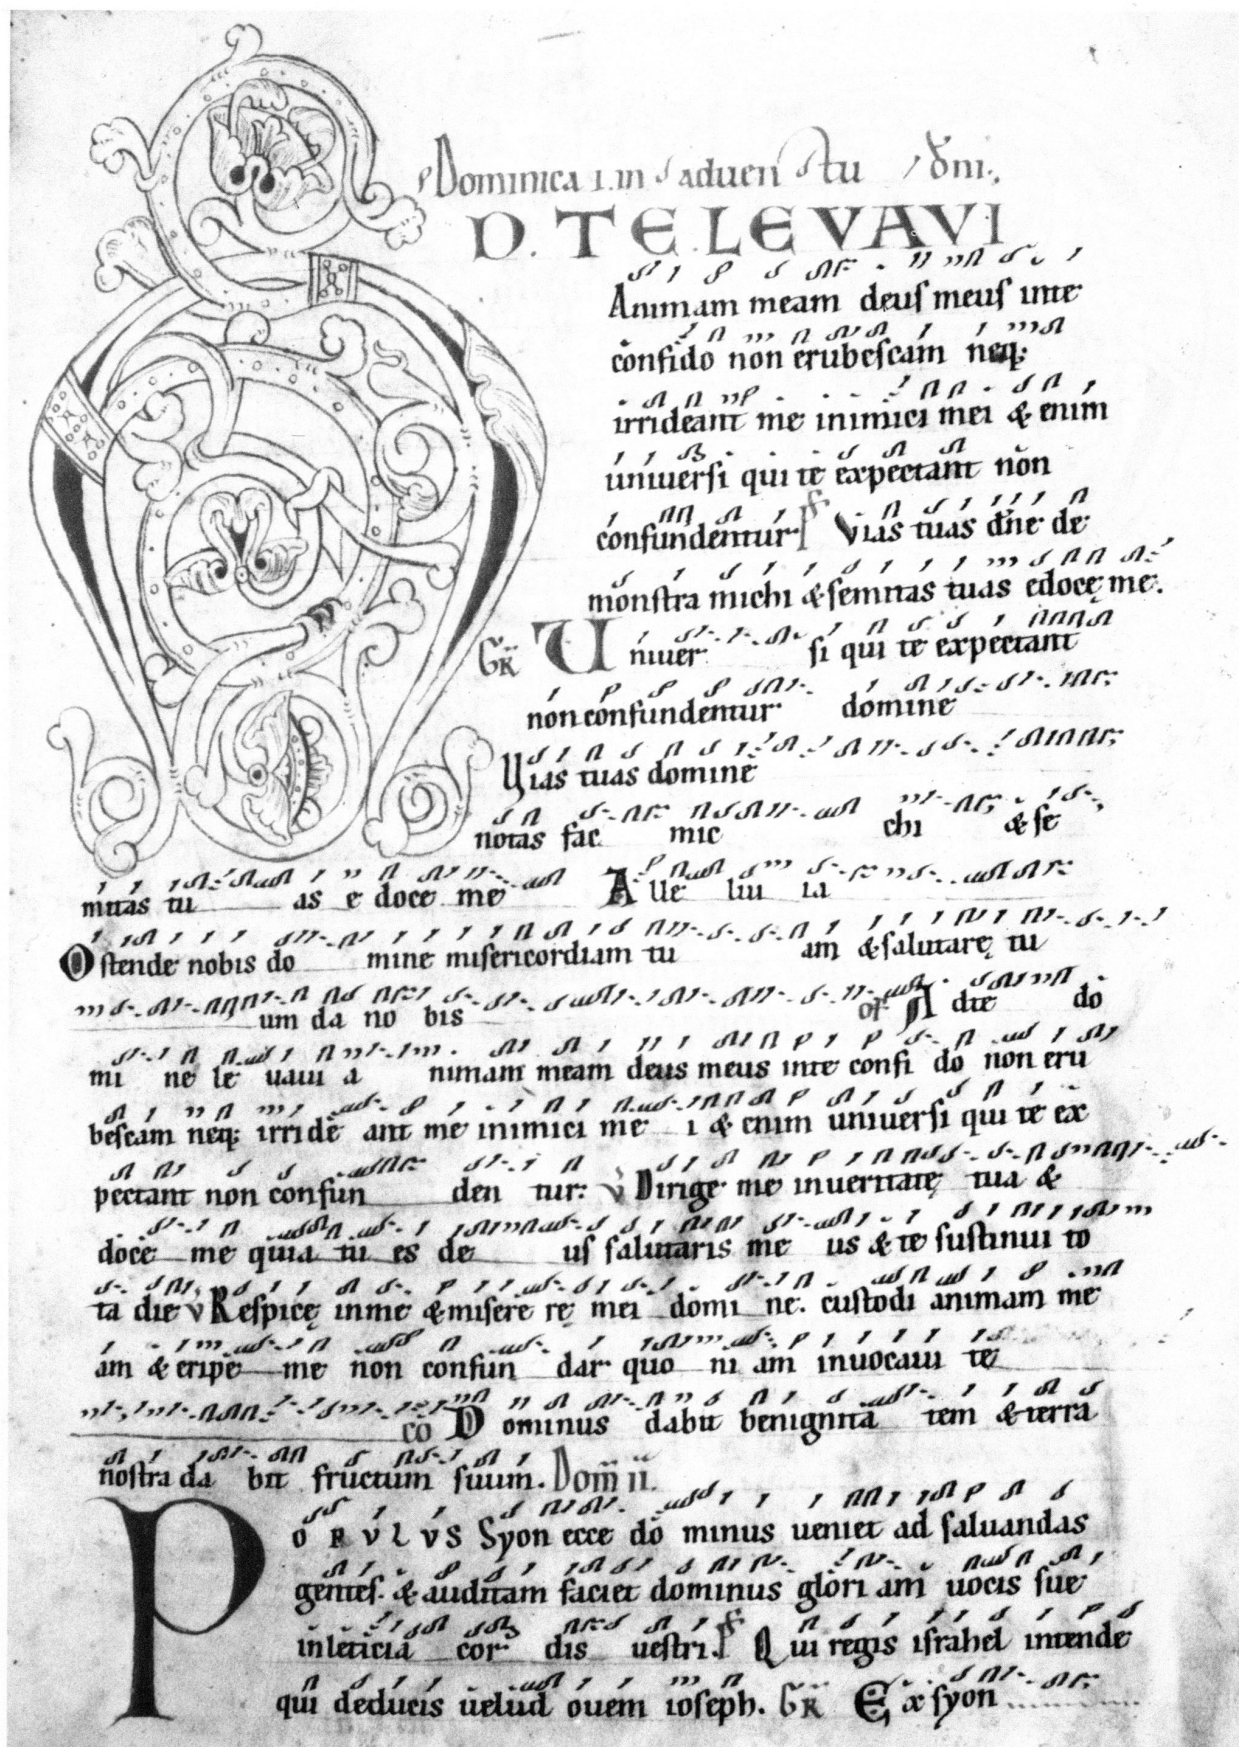 Dominica 1. in aduentu dni.
AD. TE LEVAVI
Animam meam deus meus inte
confido non erubescam neq;
irrideant me inimici mei & enim
uniuersi qui te expectant non
confundentur. Ps Vias tuas dne de
monstra michi & semitas tuas edocę me.
GR Uniuer si qui te expectant
non confundentur domine
Vias tuas domine
notas fac mic chi & se
mitas tu as e doce me Alle lui ia
Ostende nobis do mine misericordiam tu am & salutarę tu
um da no bis of Ad te do
mi ne le uaui a nimam meam deus meus inte confi do non eru
bescam neq; irride ant me inimici me i & enim uniuersi qui te ex
pectant non confun den tur: v Dirige me inueritatę tua &
doce me quia tu es de us salutaris me us & te sustinui to
ta die v Respicę inme & misere rę mei domi ne. custodi animam me
am & eripe me non confun dar quo ni am inuocaui te
co Dominus dabit benignita tem & terra
nostra da bit fructum suum. Dom ii.
POPULUS Syon ecce do minus ueniet ad saluandas
gentes. & auditam faciet dominus glori am uocis sue
inleticia cor dis uestri. Ps Qui regis israhel intende
qui deducis uelud ouem ioseph. GR Ex syon